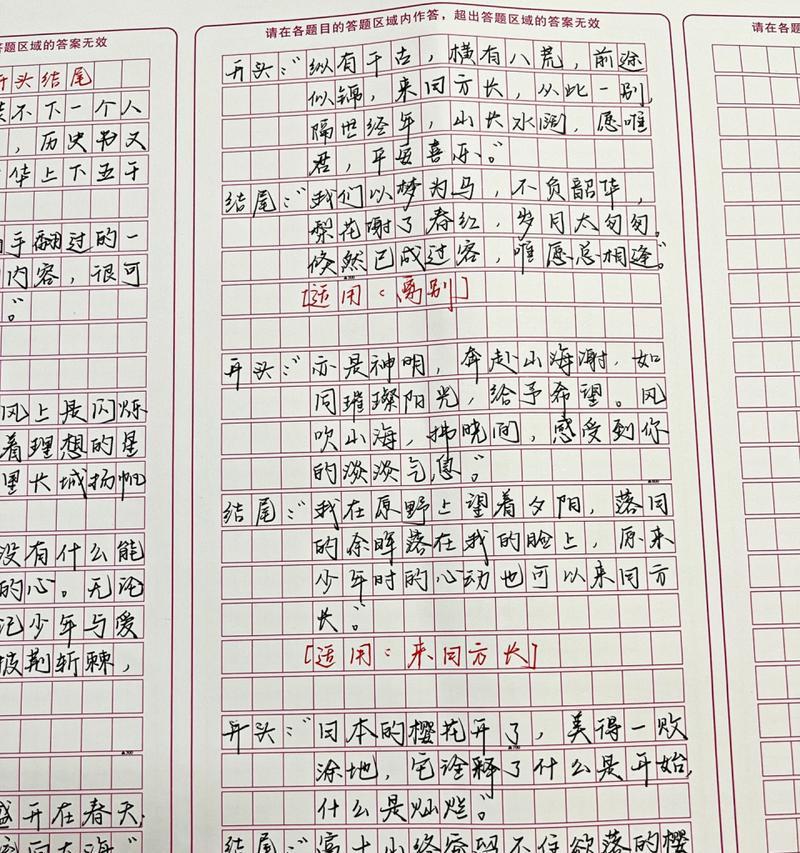 答题区域的答案无效
开头结尾
装不下一个人
，历史书又
华上下五千
手翻过的一
内容，很可
。”
风上是闪烁
着理想的星
里大城扬帆
没有什么能
的心。无论
记少年与爱
披荆斩棘，
盛开在春天，
请在各题目的答题区域内作答，超出答题区域的答案无效
开头：“纵有千古，横有八荒，前途
似锦，来日方长，从此一别，
隔世经年，山长水阔，愿唯
君，平安喜乐。”
结尾：“我们以梦为马，不负韶华，
梨花谢了春红，岁月太匆匆。
倏然已成过客，唯愿总相逢。”
[适用：离别]
开头：“亦是神明，奔赴山海谢，如
同璀璨阳光，给予希望。风
吹山海，拂晓间，感受到你
的淡淡气息。”
结尾：“我在原野上望着夕阳，落日
的余晖落在我的脸上，原来
少年时的心动也可以来日方
长。”
[适用：来日方长]
开头：“日本的樱花开了，美得一败
涂地，它诠释了什么是开始，
什么是灿烂。”
结尾：“富士山终究留不住欲落的樱
请在各